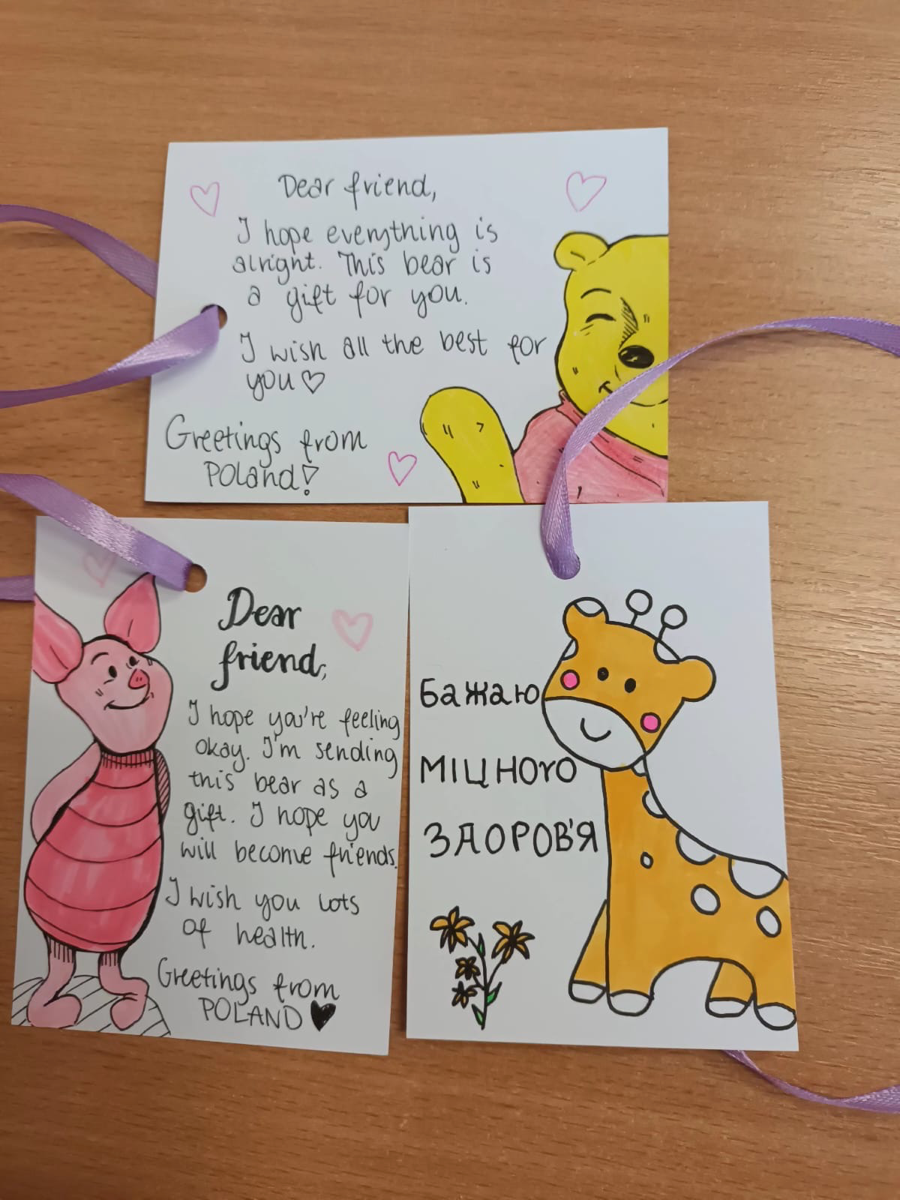 Dear friend,
I hope everything is
alright. This bear is
a gift for you.
I wish all the best for
you♡
Greetings from
POLand!
Dear
friend,
I hope you're feeling
okay. I'm sending
this bear as a
gift. I hope you
will become friends.
I wish you lots
of health.
Greetings from
POLAND♥
Бажаю
міцного
ЗДОРОВ'Я